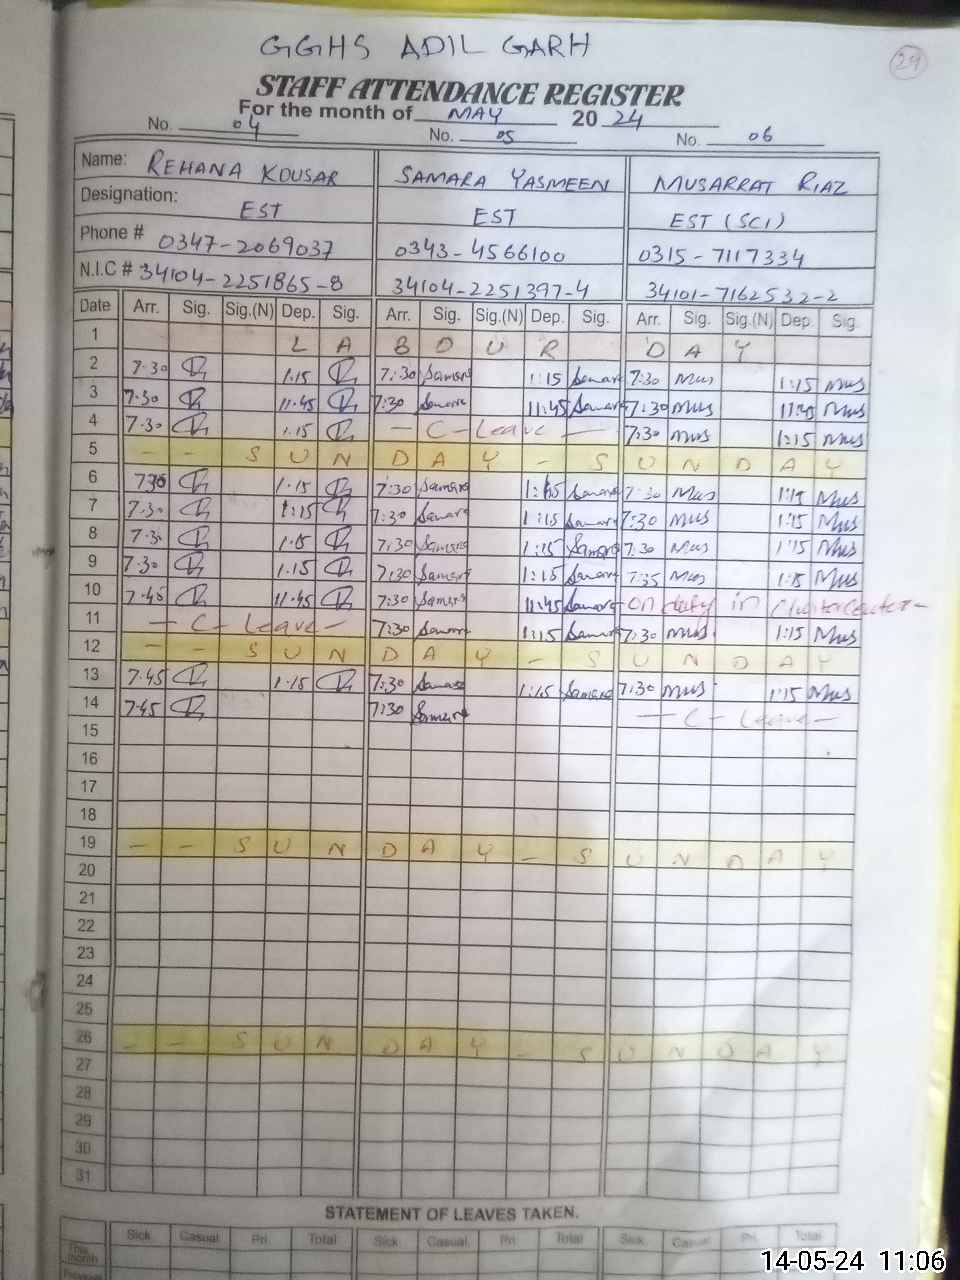 GGHS ADIL GARH
29
STAFF ATTENDANCE REGISTER
For the month of MAY 2024
No. 04 No. 05 No. 06
Name: REHANA KOUSAR SAMARA YASMEEN MUSARRAT RIAZ
Designation: EST EST EST (SCI)
Phone # 0347-2069037 0343-4566100 0315-7117334
N.I.C # 34104-2251865-8 34104-2251397-4 34101-7162532-2
Date Arr. Sig. Sig.(N) Dep. Sig. Arr. Sig. Sig.(N) Dep. Sig. Arr. Sig. Sig.(N) Dep. Sig.
1 L A B O U R D A Y
2 7.30 1.15 7:30 Samara 1:15 Samara 7:30 Mus 1:15 Mus
3 7.30 11.45 7:30 Samara 11:45 Samara 7:30 Mus 11:45 Mus
4 7.30 1.15 - C-Leave - 7:30 Mus 1:15 Mus
5 - - S U N D A Y - S U N D A Y
6 7.30 1.15 7:30 Samara 1:15 Samara 7:30 Mus 1:15 Mus
7 7.30 1:15 7:30 Samara 1:15 Samara 7:30 Mus 1:15 Mus
8 7.30 1.15 7:30 Samara 1:15 Samara 7:30 Mus 1:15 Mus
9 7.30 1.15 7:30 Samara 1:15 Samara 7:35 Mus 1:15 Mus
10 7.45 11.45 7:30 Samara 11:45 Samara - on duty in
11 - C- Leave - 7:30 Samara 1:15 Samara 7:30 Mus 1:15 Mus
12 - - S U N D A Y - S U N D A Y
13 7.45 1.15 7:30 Samara 1:15 Samara 7:30 Mus 1:15 Mus
14 7.45 7:30 Samara - C- Leave -
15
16
17
18
19 - - S U N D A Y - S U N D A Y
20
21
22
23
24
25
26 - - S U N D A Y - S U N D A Y
27
28
29
30
31
STATEMENT OF LEAVES TAKEN.
Sick Casual Pri. Total Sick Casual Pri Total Sick Casual Pri. Total
This month
14-05-24 11:06